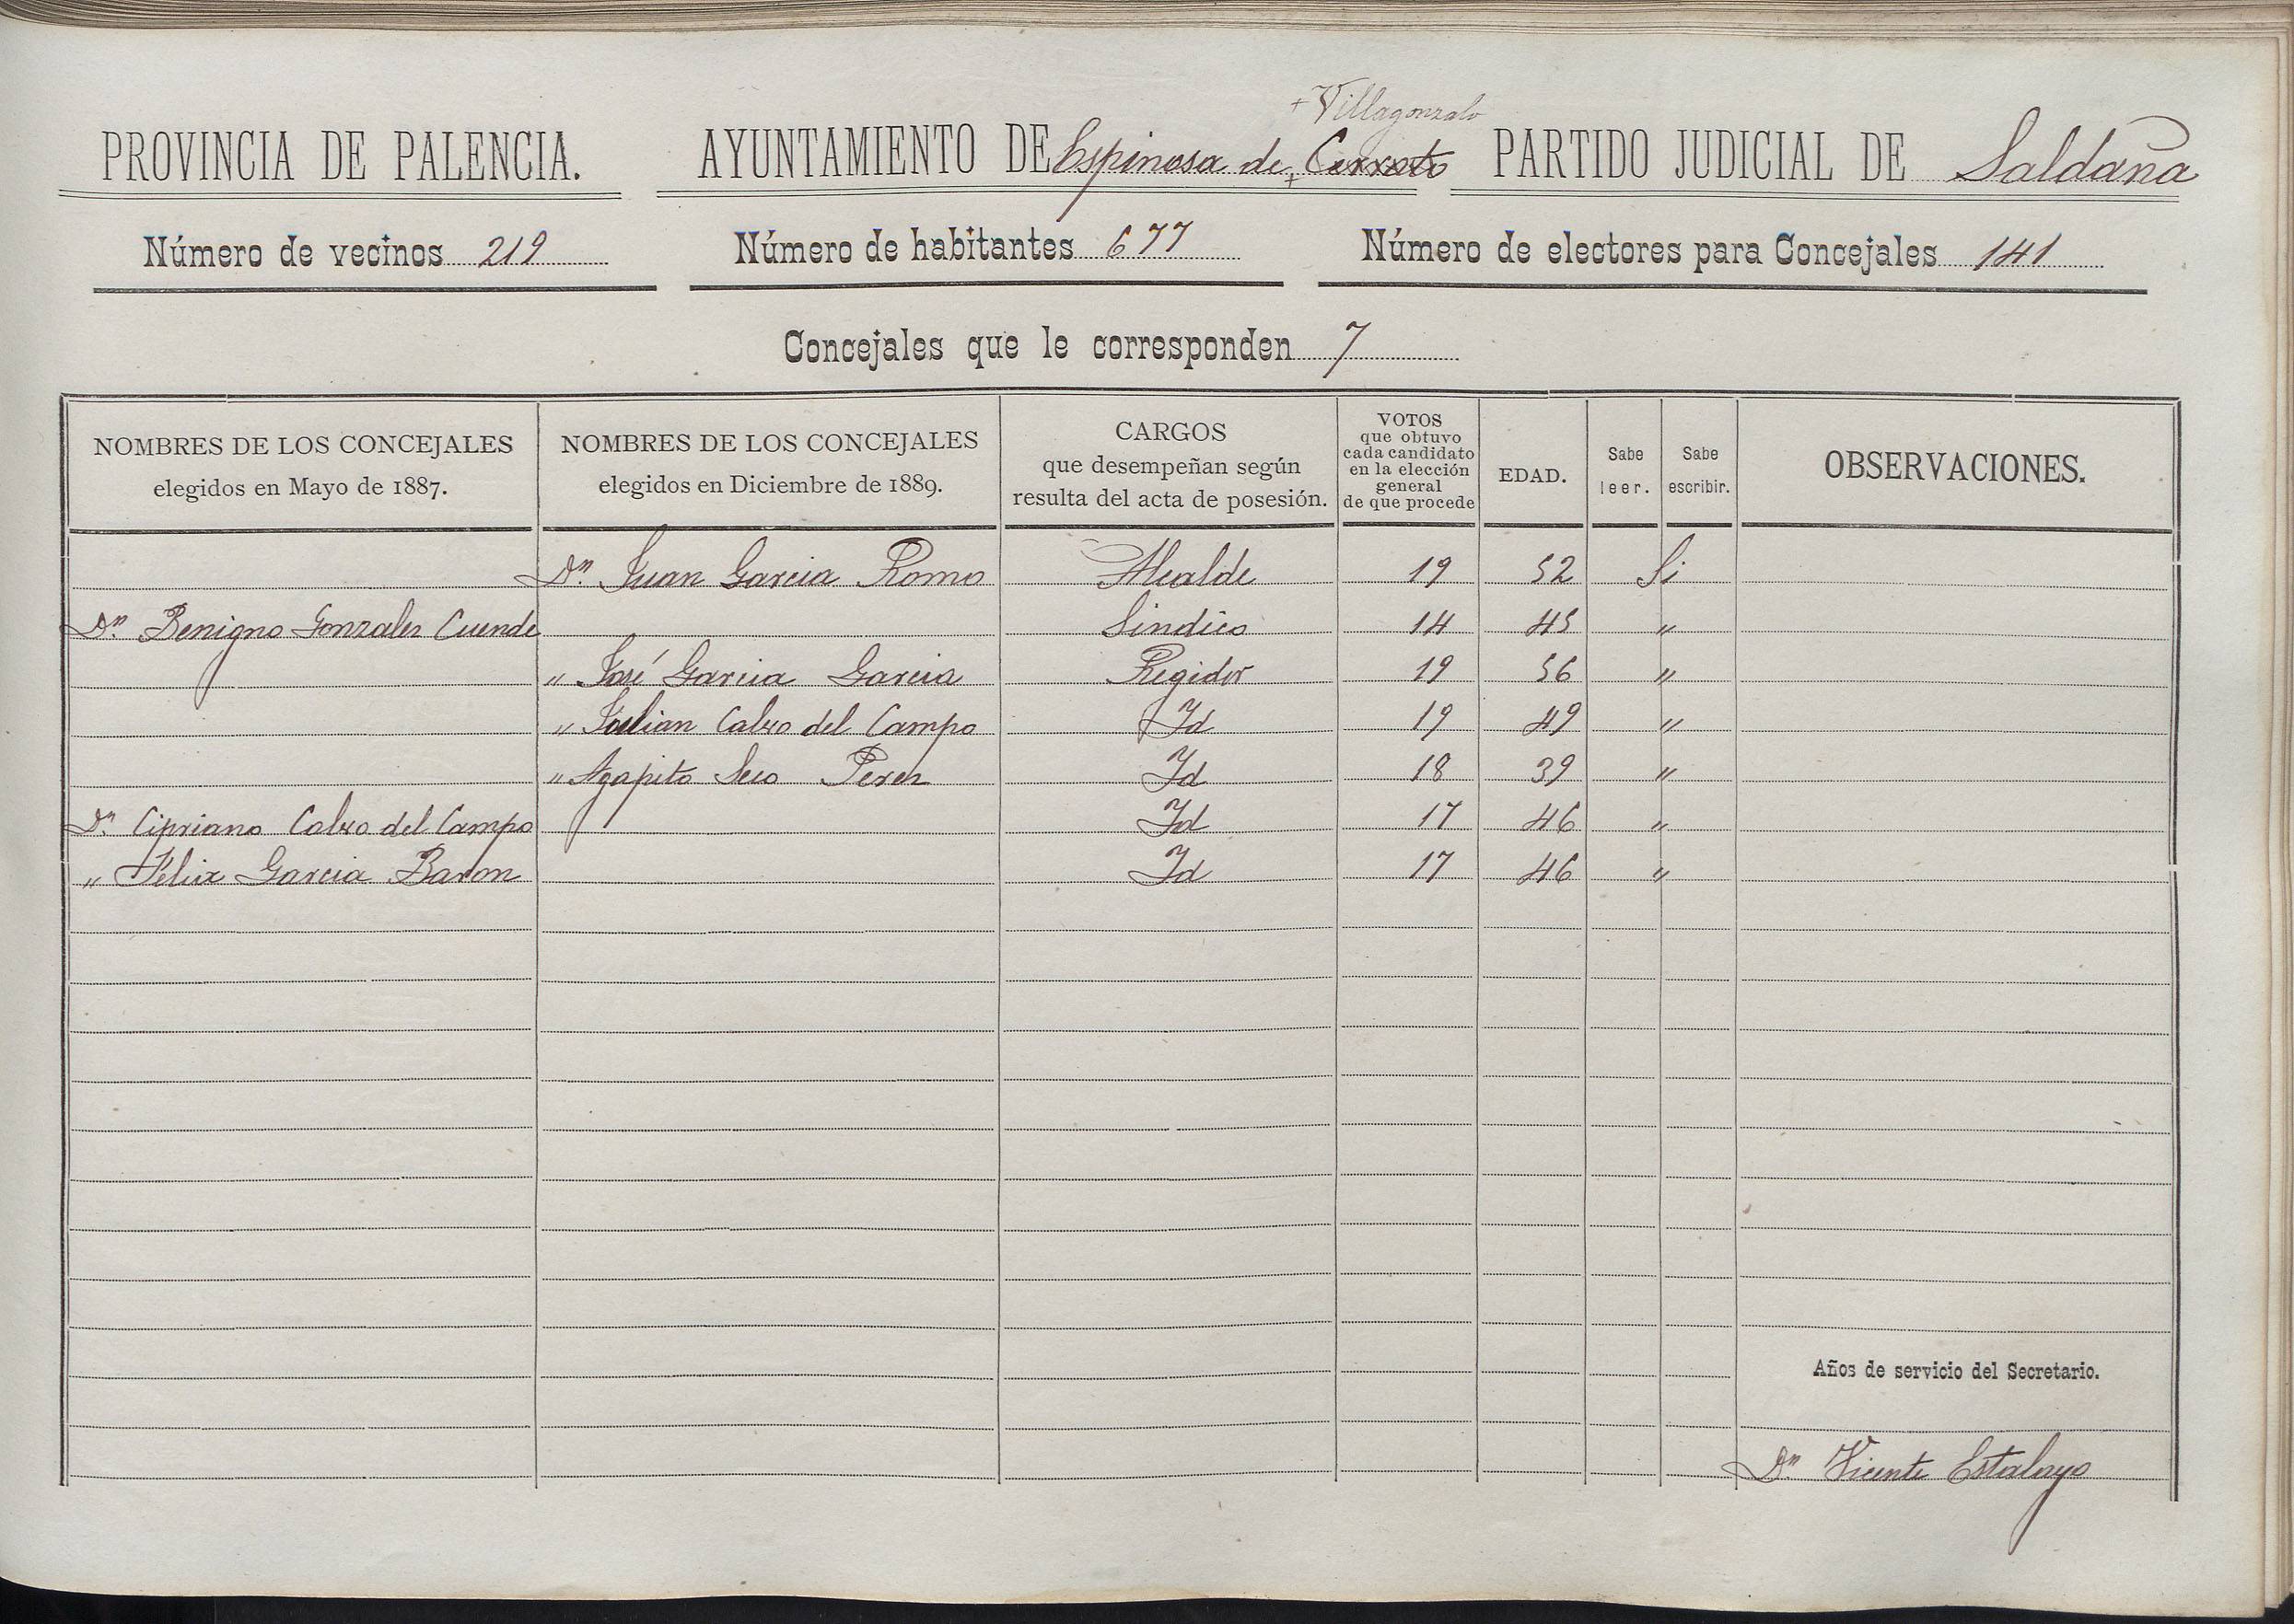 + Villagonzalo
PROVINCIA DE PALENCIA. AYUNTAMIENTO DE Espinosa de + Cerrato PARTIDO JUDICIAL DE Saldaña
Número de vecinos 219 Número de habitantes 677 Número de electores para Concejales 141
Concejales que le corresponden 7
NOMBRES DE LOS CONCEJALES
elegidos en Mayo de 1887.
NOMBRES DE LOS CONCEJALES
elegidos en Diciembre de 1889.
CARGOS
que desempeñan según
resulta del acta de posesión.
VOTOS
que obtuvo
cada candidato
en la elección
general
de que procede
EDAD.
Sabe
leer.
Sabe
escribir.
OBSERVACIONES.
Dn. Juan Garcia Romo Alcalde 19 52 Si
Dn. Benigno Gonzalez Cuende Sindico 14 45 "
" José Garcia Garcia Regidor 19 56 "
" Julian Calvo del Campo Id 19 49 "
" Agapito Seco Perez Id 18 39 "
Dn. Cipriano Calvo del Campo Id 17 46 "
" Felix Garcia Baron Id 17 46 "
Años de servicio del Secretario.
Dn Vicente Estalayo